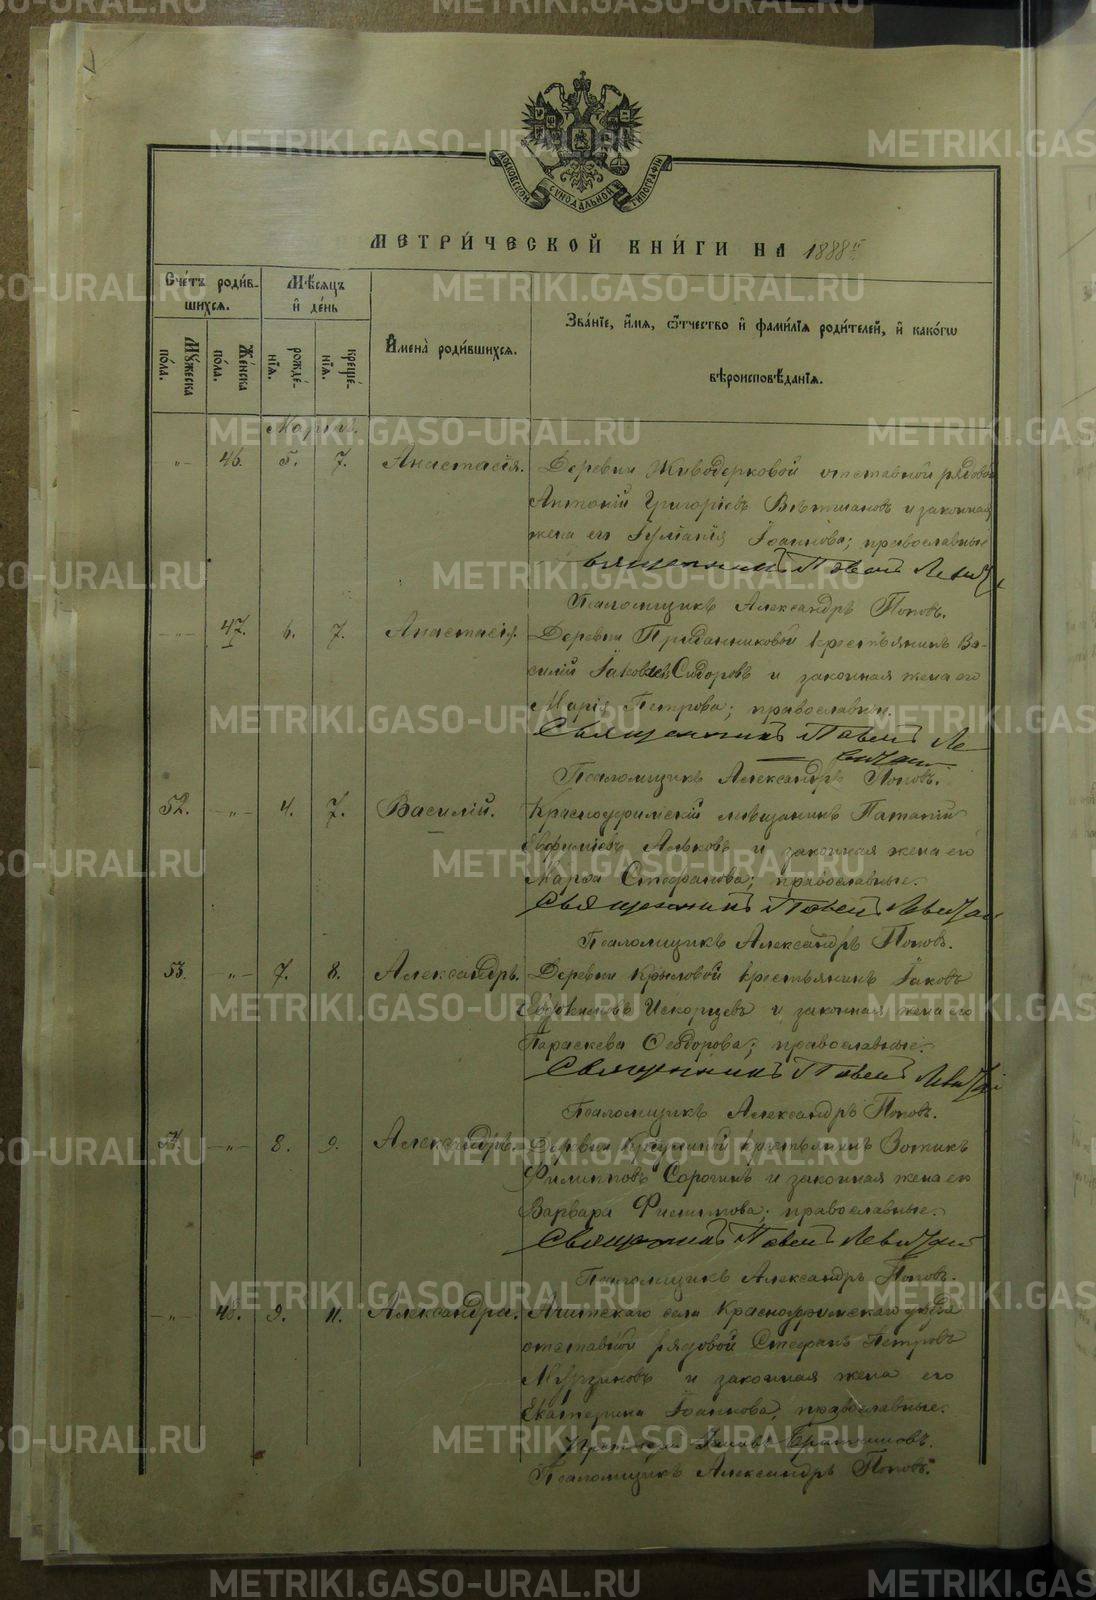 METRIKI.GASO-URAL.RU
МОСКОВСКОЙ СѴНОДАЛЬНОЙ ТИПОГРАФІИ
МЕТРИ́ЧЕСКОЙ КНИ́ГИ НА 1888й
Сче́тъ роди́вшихся.
Му́жеска по́ла.
Же́нска по́ла.
Мѣ́сяцъ и҆ де́нь
рожде́нїѧ.
креще́нїѧ.
И҆мена̀ роди́вшихсѧ.
Зва́нїе, и҆́мѧ, ѻ҆́тчество и҆ фами́лїѧ роди́телей, и҆ како́гѡ
вѣроисповѣ́данїѧ.
Мартъ.
-„- 46. 5. 7. Анастасія. Деревни Живодерковой отставной рядовой
Антоній Григоріевъ и законная
жена его Іуліанія Іоаннова; православные
Священникъ Павелъ
Псаломщикъ Александръ Поповъ.
-„- 47. 6. 7. Анастасія. Деревни Приданниковой крестьянинъ Ва-
силій Іаковлевъ Сидоровъ и законная жена его
Марія Петрова; православные.
Священникъ Павелъ Ле
витскій
Псаломщикъ Александръ Поповъ.
52. -„- 4. 7. Василій. Красноуфимскій мѣщанинъ
Евфиміевъ и законная жена его
Марѳа Стефанова; православные.
Священникъ Павелъ Левитскій
Псаломщикъ Александръ Поповъ.
53. -„- 7. 8. Александръ. Деревни Крыловой крестьянинъ Іаковъ
Искорцевъ и законная жена его
Параскева Ѳеодорова; православные.
Священникъ Павелъ Левитскій
Псаломщикъ Александръ Поповъ.
54. -„- 8. 9. Александръ. Деревни крестьянинъ Зотикъ
Филипповъ Сорогинъ и законная жена его
Варвара Филиппова; православные.
Священникъ Павелъ Левитскій
Псаломщикъ Александръ Поповъ.
-„- 48. 9. 11. Александра. Ачитскаго села Красноуфимскаго уѣзда
отставной рядовой Стефанъ Петровъ
Мурзиновъ и законная жена его
Екатерина Іоаннова, православные.
Протоіерей
Псаломщикъ Александръ Поповъ.